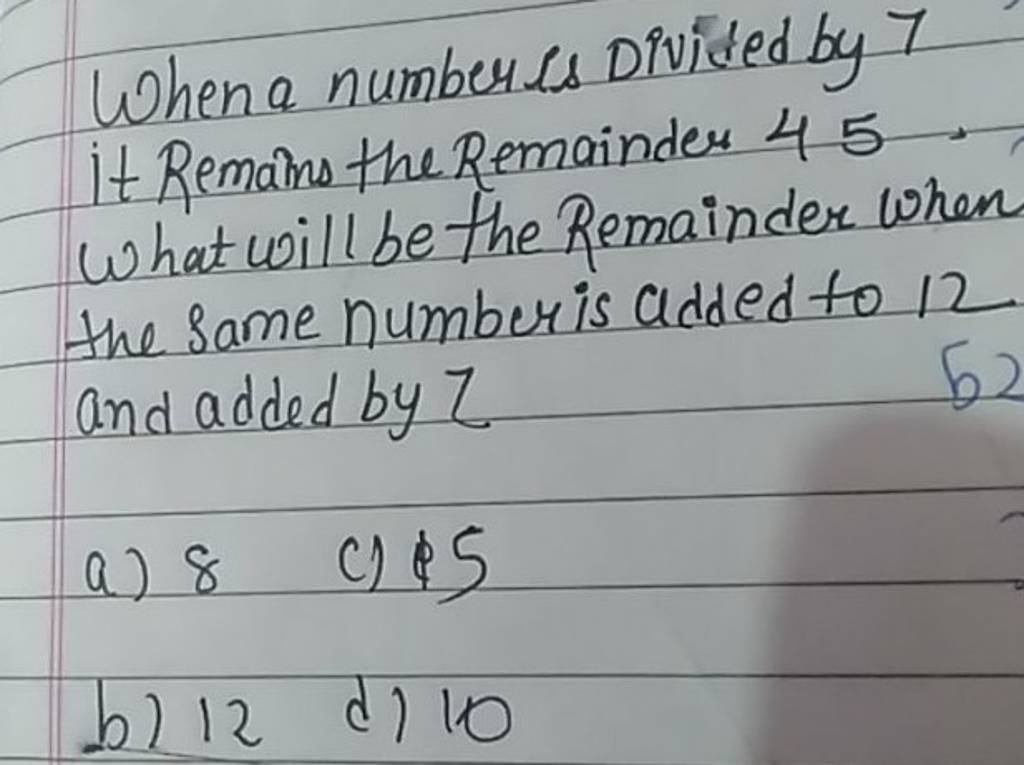 When a number is Divided by 7
it Remains the Remainder 45.
What will be the Remainder when
the same number is added to 12
and added by 7
62
a) 8 c) 5
b) 12 d) 10